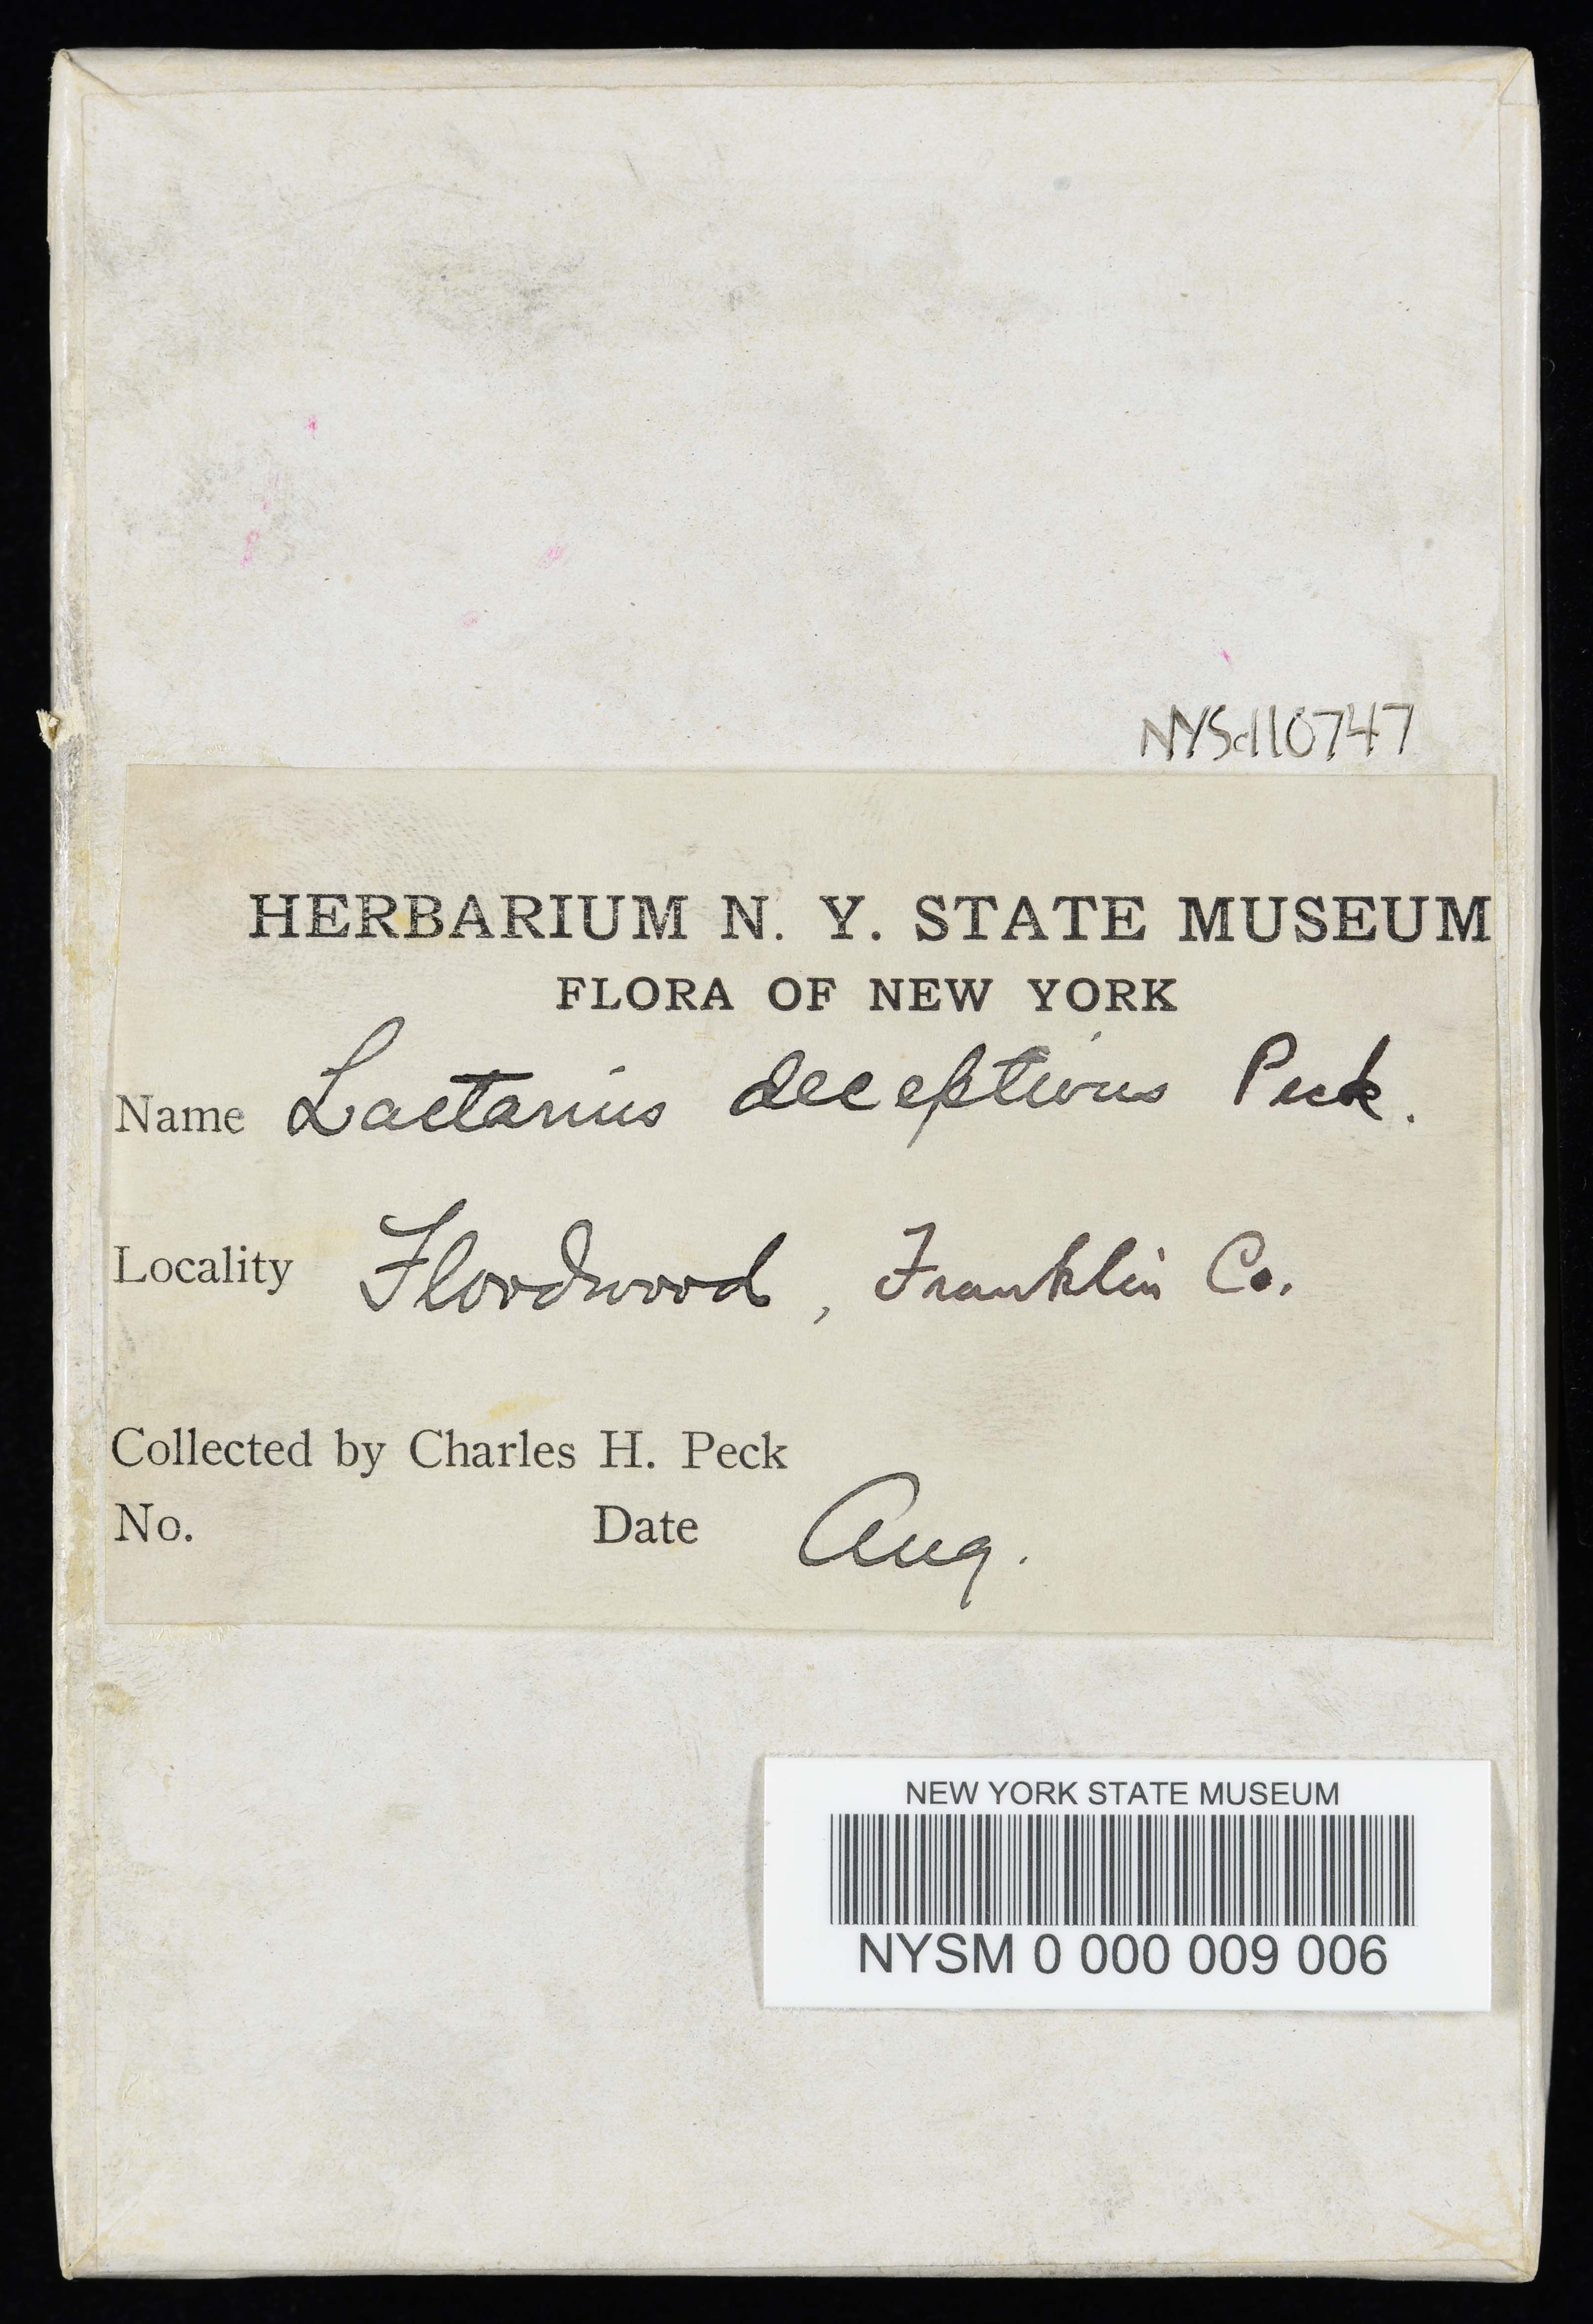 NYSd10747
HERBARIUM N. Y. STATE MUSEUM
FLORA OF NEW YORK
Name Lactarius deceptivus Peck.
Locality Floodwood, Franklin Co.
Collected by Charles H. Peck
No. Date Aug.
NEW YORK STATE MUSEUM
NYSM 0 000 009 006